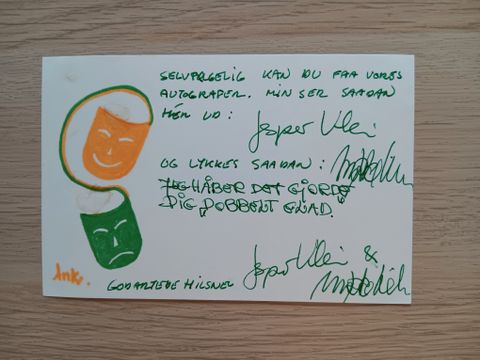 SELVFØLGELIG KAN DU FAA VORES
AUTOGRAFER. MIN SER SAADAN
HER UD: Jesper Klein
OG LYKKES SAADAN:
JEG HÅBER DET GJORDE
DIG DOBBELT GLAD.
Jesper Klein &
GODARTEDE HILSNER